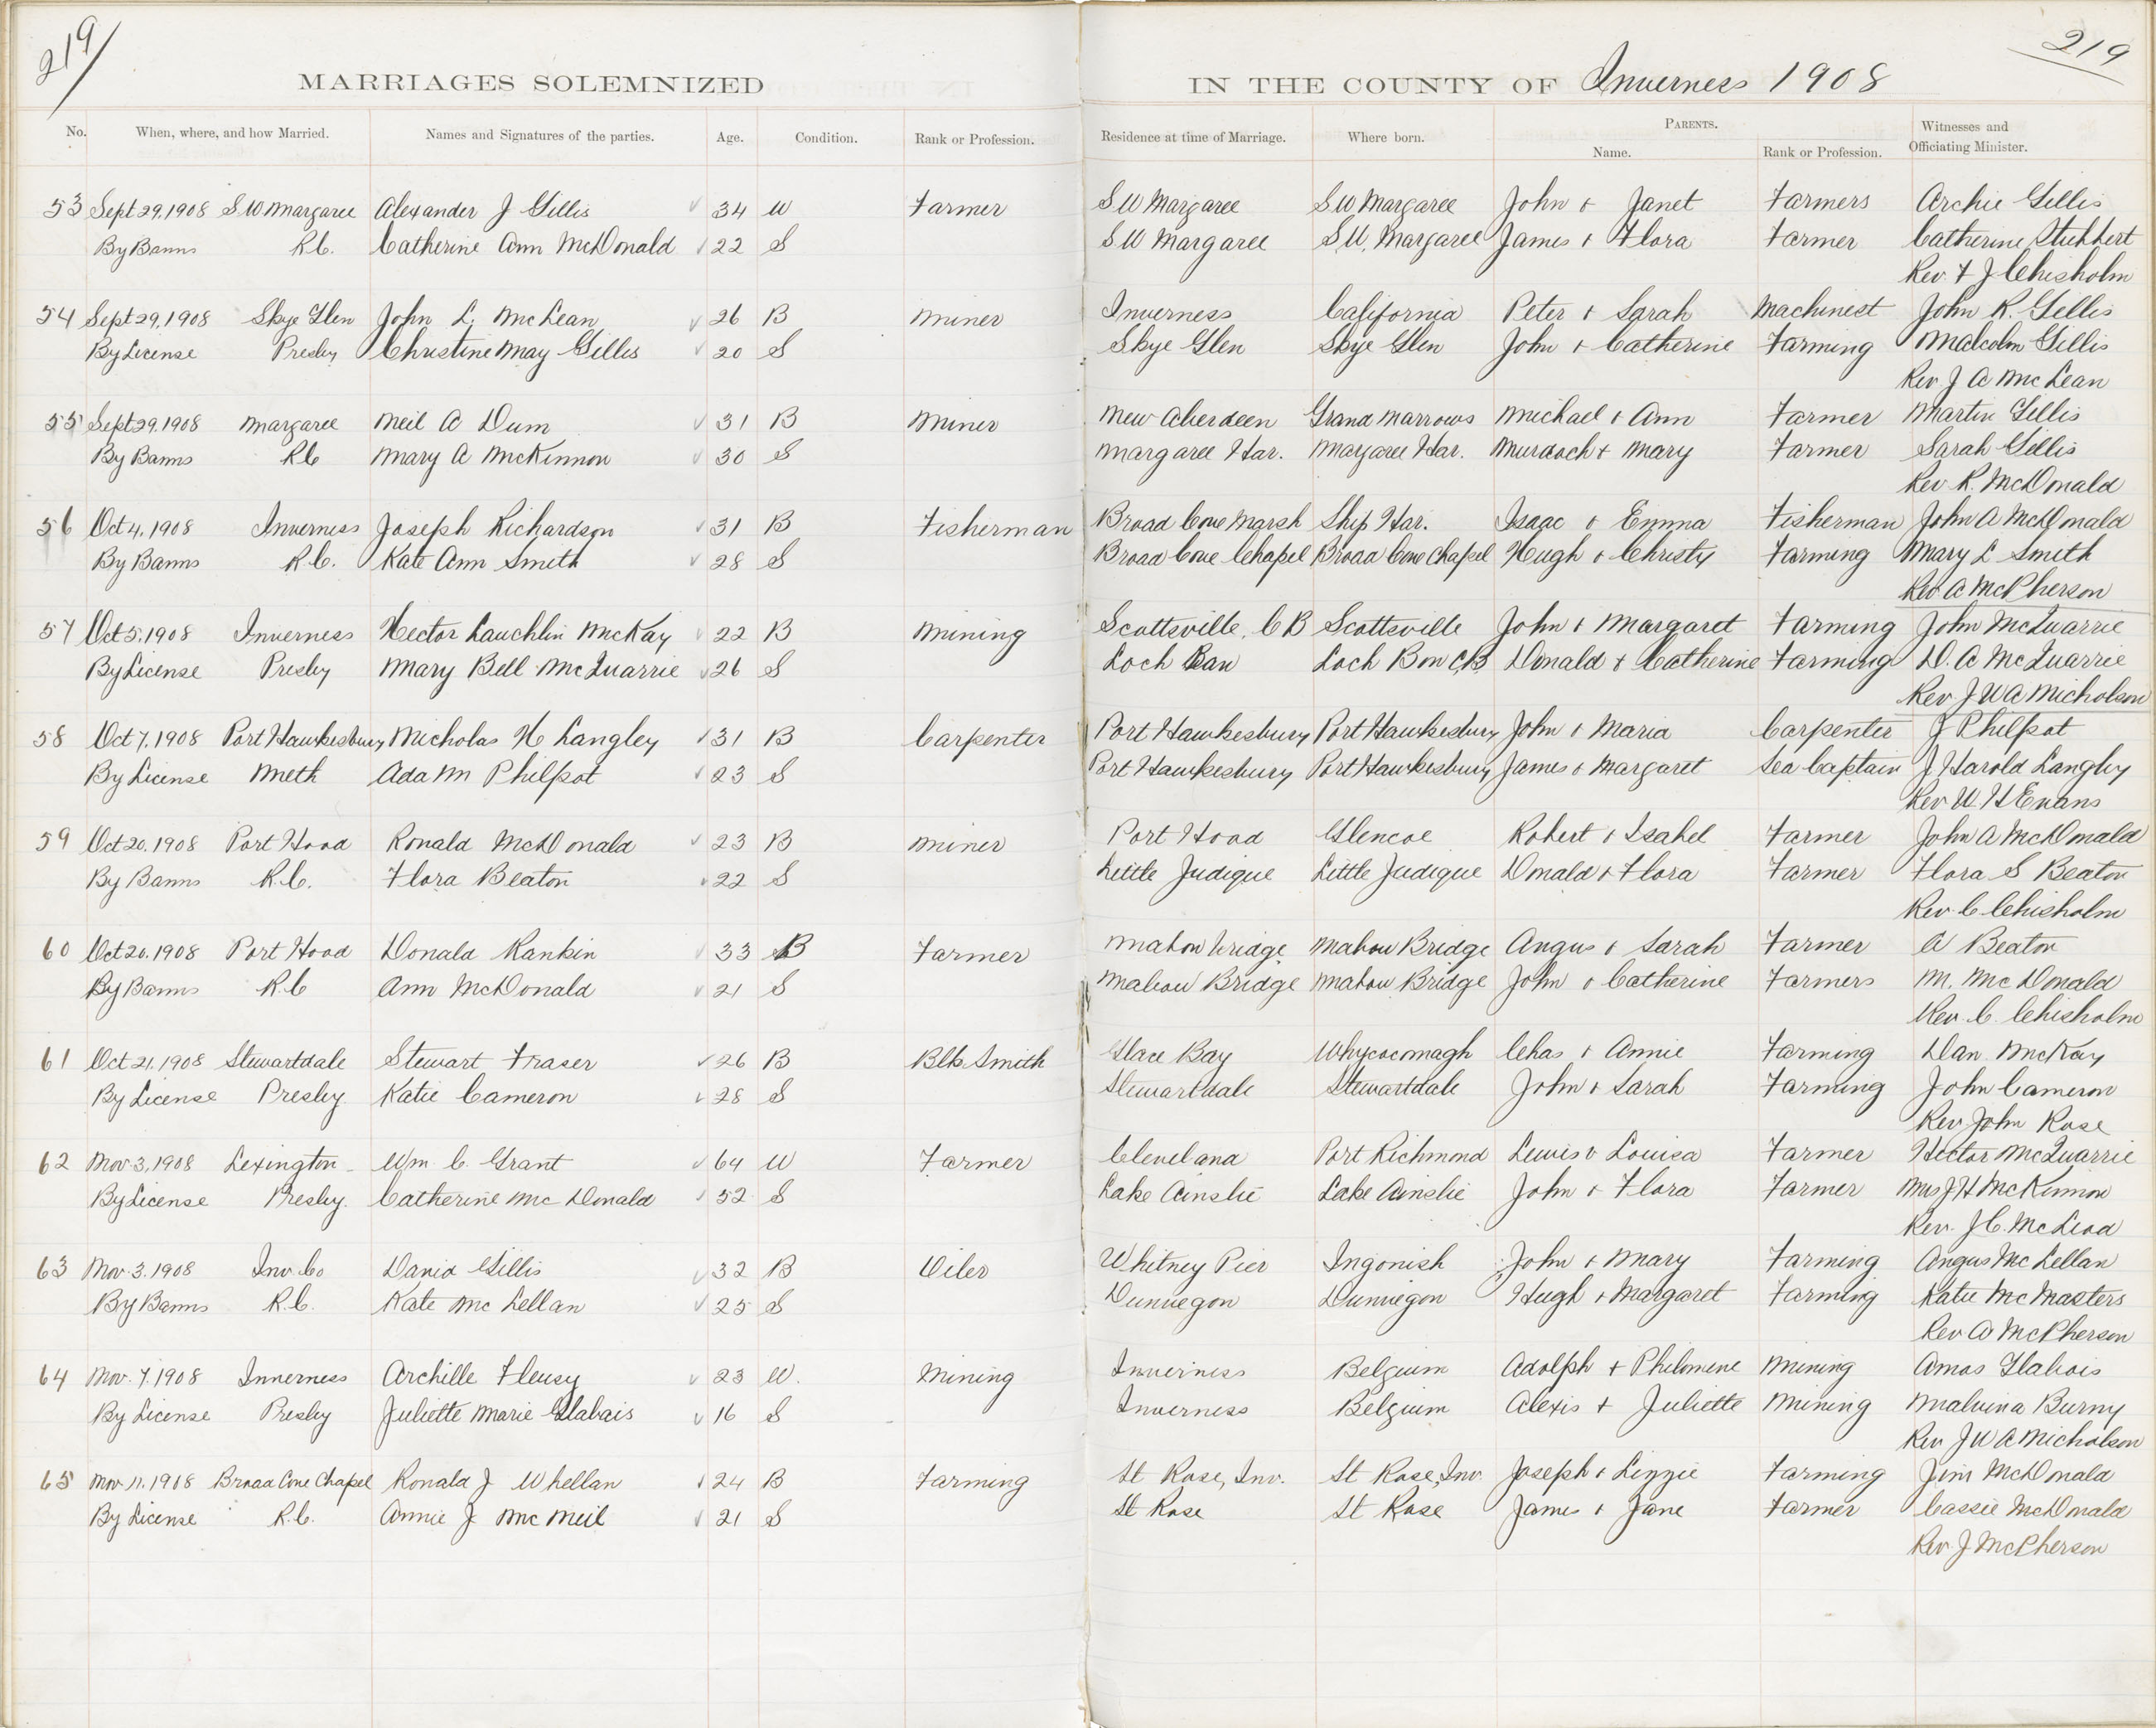 219
219
MARRIAGES SOLEMNIZED IN THE COUNTY OF Inverness 1908
No. When, where, and how Married. Names and Signatures of the parties. Age. Condition. Rank or Profession. Residence at time of Marriage. Where born. PARENTS. Name. Rank or Profession. Witnesses and Officiating Minister.
53 Sept 29, 1908 S W Margaree Alexander J Gillis 34 W Farmer S W Margaree S W Margaree John & Janet Farmers Archie Gillis
By Banns R C. Catherine Ann McDonald 22 S S W Margaree S.W. Margaree James & Flora Farmer Catherine
Rev. F J Chisholm
54 Sept 29, 1908 Skye Glen John L. McLean 26 B Miner Inverness California Peter & Sarah Machinest John R. Gillis
By License Presby Christine May Gillis 20 S Skye Glen Skye Glen John & Catherine Farming Malcolm Gillis
Rev. J A McLean
55 Sept 29, 1908 Margaree Neil A Dum 31 B Miner New Aberdeen Grand Marrows Michael & Ann Farmer Martin Gillis
By Banns R C Mary A McKinnon 30 S Margaree Har. Margaree Har. Murdoch & Mary Farmer Sarah Gillis
Rev. R. McDonald
56 Oct 4, 1908 Inverness Joseph Richardson 31 B Fisherman Broad Cove Marsh Ship Har. Isaac & Emma Fisherman John A McDonald
By Banns R. C. Kate Ann Smith 28 S Broad Cove Chapel Broad Cove Chapel Hugh & Christy Farming Mary L Smith
Rev A McPherson
57 Oct 5, 1908 Inverness Hector Lauchlin McKay 22 B Mining Scottsville, C B Scottsville John & Margaret Farming John McQuarrie
By License Presby Mary Bell McQuarrie 26 S Loch Ban Loch Bon C,B Donald & Catherine Farming D. A McQuarrie
Rev. J W A Nicholson
58 Oct 7, 1908 Port Hawkesbury Nicholas H Langley 31 B Carpenter Port Hawkesbury Port Hawkesbury John & Maria Carpenter J Philpot
By License Meth Ada M Philpot 23 S Port Hawkesbury Port Hawkesbury James & Margaret Sea Captain J Harold Langley
Rev W. H Evans
59 Oct 20, 1908 Port Hood Ronald McDonald 23 B Miner Port Hood Glencoe Robert & Isabel Farmer John A McDonald
By Banns R.C. Flora Beaton 22 S Little Judique Little Judique Donald & Flora Farmer Flora S Beaton
Rev. C Chisholm
60 Oct 20, 1908 Port Hood Donald Rankin 33 B Farmer Mabou bridge Mabou Bridge Angus & Sarah Farmer A Beaton
By Banns R.C Ann McDonald 21 S Mabou Bridge Mabou Bridge John & Catherine Farmers M. McDonald
Rev. C. Chisholm
61 Oct 21, 1908 Stewartdale Stewart Fraser 26 B Blk Smith Glace Bay Whycocomagh Chas & Annie Farming Dan McKay
By License Presby Katie Cameron 28 S Stewartdale Stewartdale John & Sarah Farming John Cameron
Rev John Rose
62 Nov. 3, 1908 Lexington Wm. C. Grant 64 W Farmer Cleveland Port Richmond Lewis & Louisa Farmer Hector McQuarrie
By License Presby. Catherine McDonald 52 S Lake Ainslie Lake Ainslie John & Flora Farmer Mrs J H McKinnon
Rev. J C. McLeod
63 Nov. 3. 1908 Inv. Co David Gillis 32 B Oiler Whitney Pier Ingonish John & Mary Farming Angus McLellan
By Banns R.C. Kate McLellan 25 S Dunvegon Dunvegon Hugh & Margaret Farming Katie McMasters
Rev A McPherson
64 Nov. 7. 1908 Inverness Archille Fleusy 23 W. Mining Inverness Belgium Adolph & Philomene Mining Amos Glabois
By License Presby Juliette Marie Glabais 16 S Inverness Belgium Alexis & Juliette Mining Malvina Burny
Rev J W A Nicholson
65 Nov. 11, 1908 Broad Cove Chapel Ronald J Whellan 24 B Farming St Rose, Inv. St Rose, Inv. Joseph & Lizzie Farming Jim McDonald
By License R.C. Annie J McNeil 21 S St Rose St Rose James & Jane Farmer Cassie McDonald
Rev. J McPherson